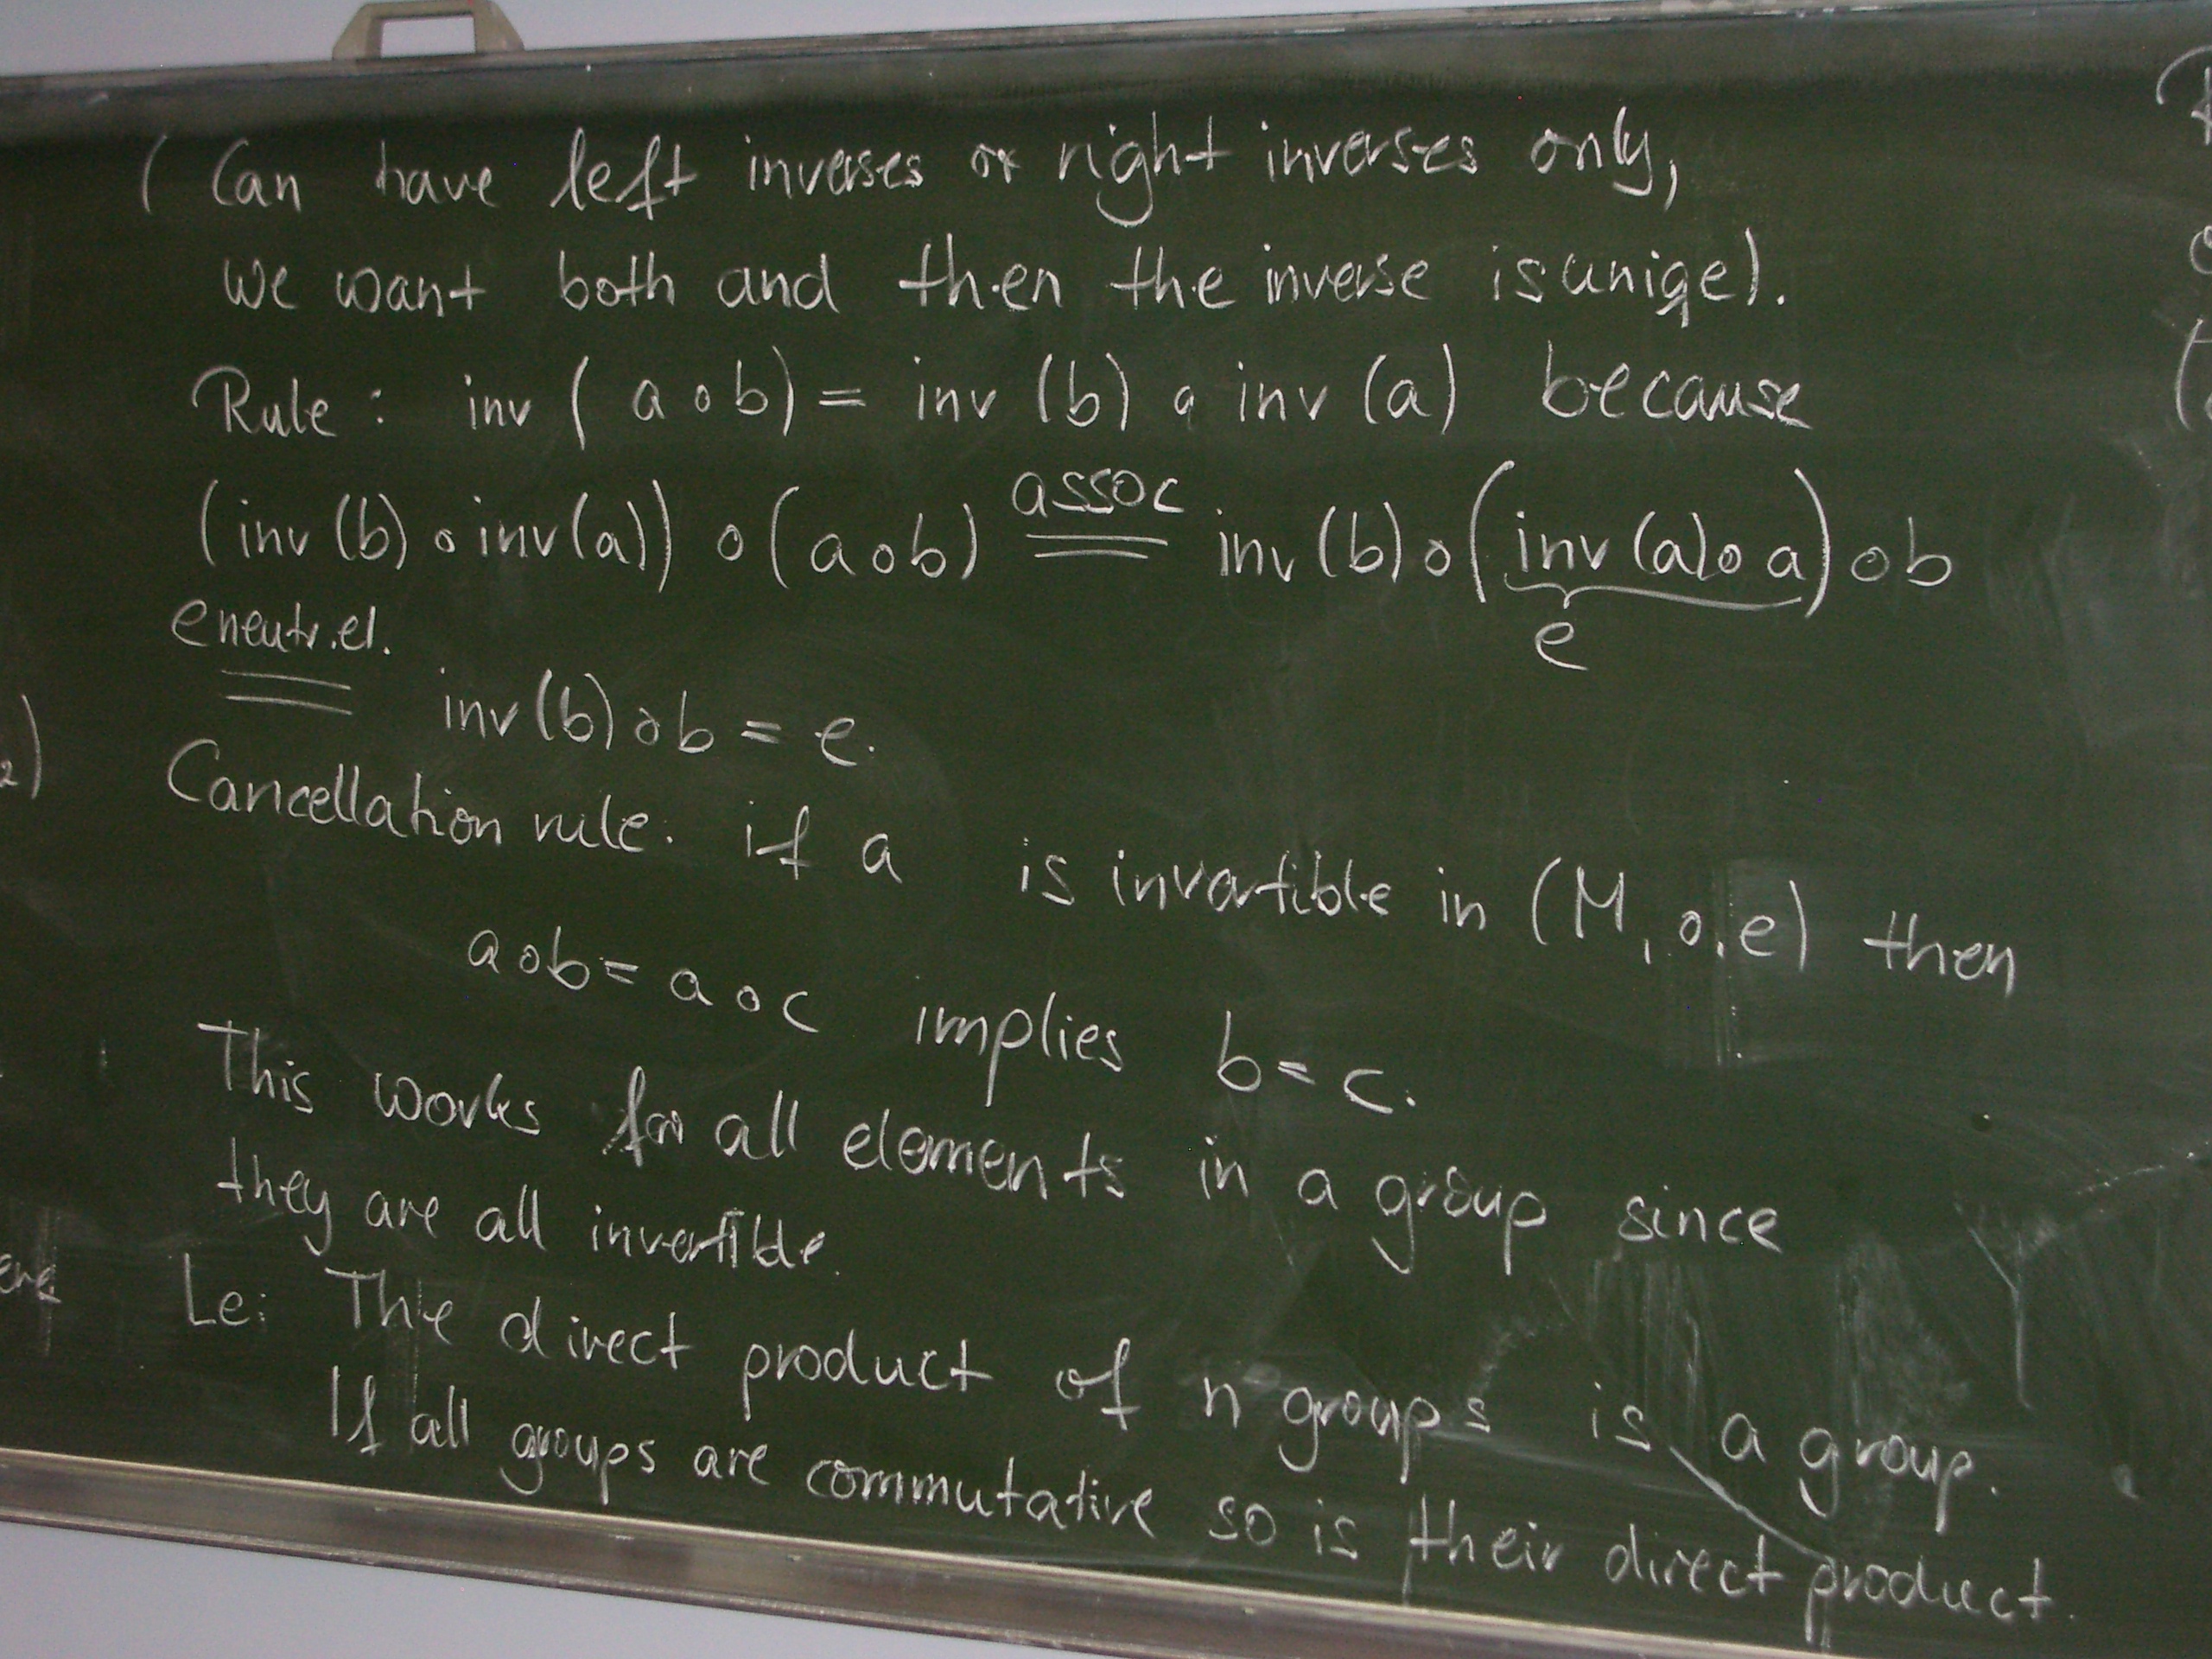 ( Can have left inverses or right inverses only,
we want both and then the inverse is uniqe).
Rule: inv ( a ∘ b) = inv (b) ∘ inv (a) because
(inv (b) ∘ inv(a)) ∘ (a ∘ b) assoc = inv (b) ∘ (inv (a) ∘ a) ∘ b
e neutr. el. e
= inv (b) ∘ b = e.
Cancellation rule: if a is invertible in (M, ∘, e) then
a ∘ b = a ∘ c implies b = c.
This works for all elements in a group since
they are all invertible.
Le: The direct product of n groups is a group.
If all groups are commutative so is their direct product.